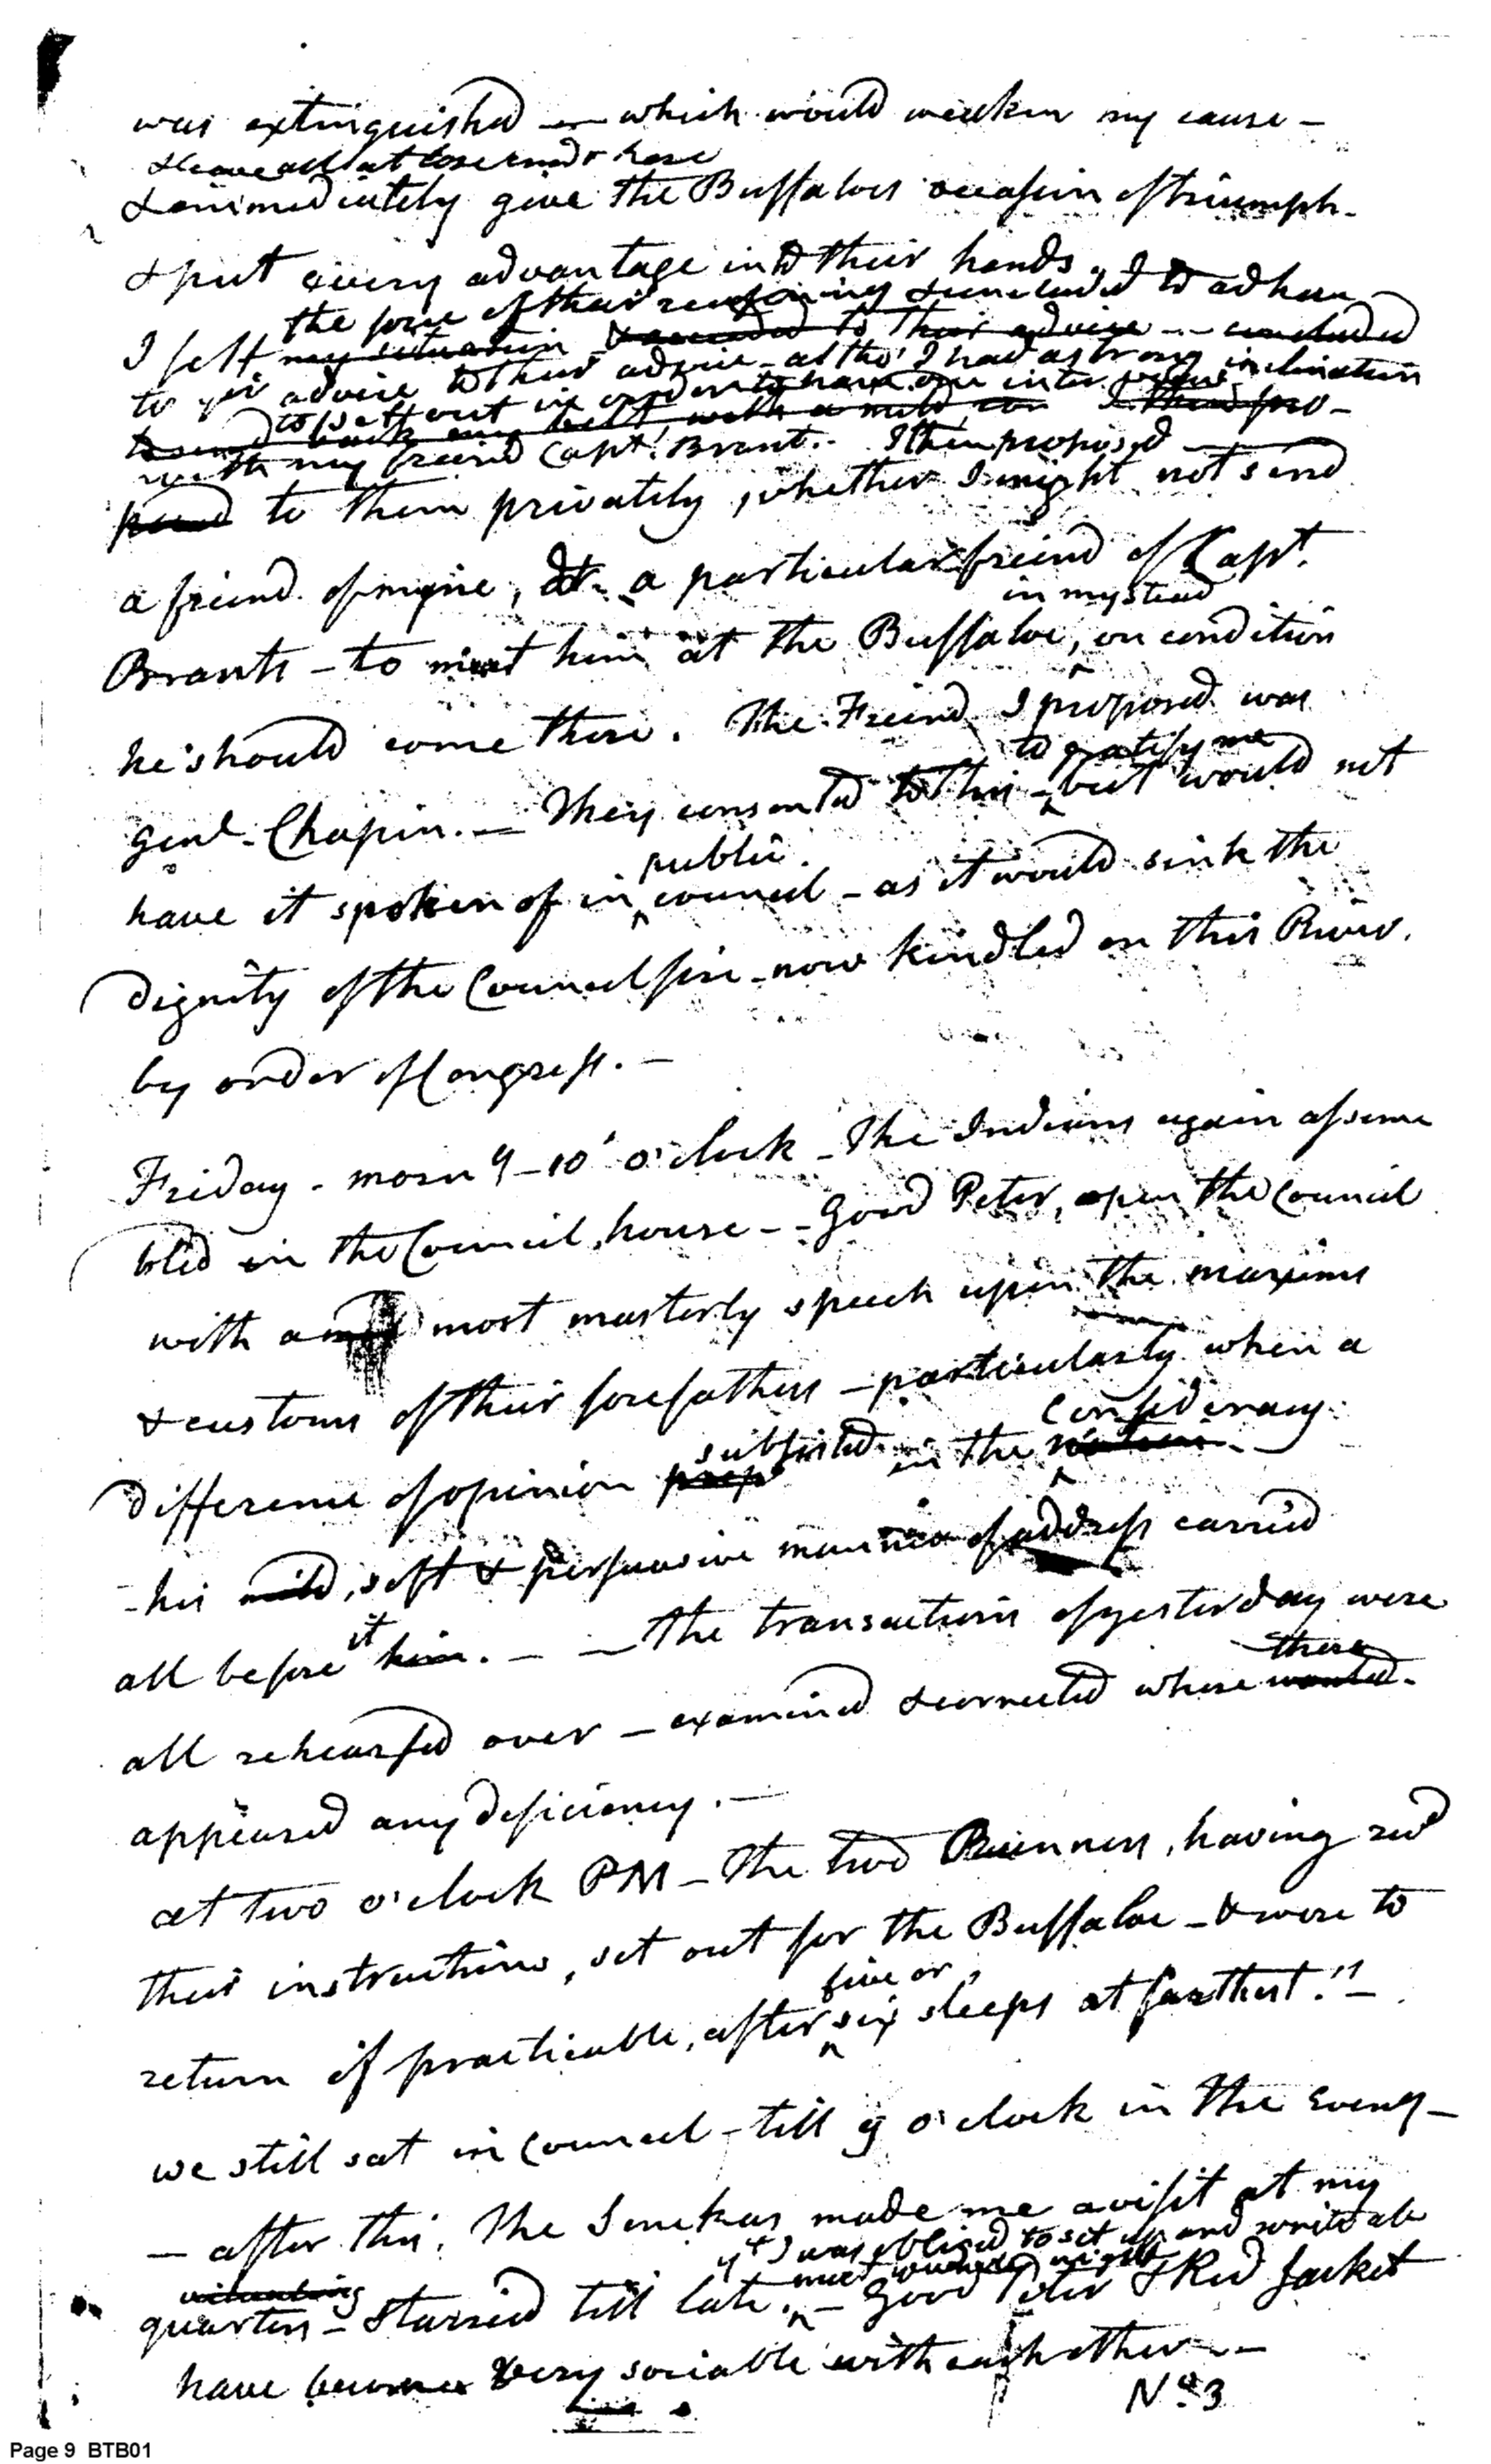 was extinguished — which would weaken my cause –
& leave all at loose ends & here
& immediately give the Buffaloes occasion of triumph –
& put every advantage into their hands.
the force of their reasoning & concluded to adhere
I felt my situation & acceded to their advice – – concluded
to yir advice to their advice – altho' I had a strong inclination
to set out in order to have an interview
to send back my belt, with a mild I then pro–
with my freind Capt. Brant. – I then proposed
posed to them privately, whether I might not send
a freind of mine, & a particular freind of Capt.
in my stead
Brants – to meet him at the Buffaloe, on condition
he should come there. The Freind I proposed was
to gratify me
Genl. Chapin. — They consented to this – but would not
public
have it spoken of in council – as it would sink the
Dignity of the Council fire – now kindled on this River.
by order of Congress. –
Friday – morn 9–10 o'clock – The Indians again assem
bled in the Council house – – Good Peter, open the Council
with a most masterly speech upon the maxims
& customs of their forefathers – particularly when a
Confideracy
subsisted
Difference of opinion in the nation –
– his mild, soft & persuasive manner of address carried
it
all before him. – — The transactions of yesterday were
there
all rehearsed over – examined & corrected where wanted –
appeared any deficiency. —
at two o'clock PM – The two Runners, having recd
their instructions, set out for the Buffaloe – & were to
five or
return if practicable, after six sleeps at farthest." –
we still sat in Council – till 9 o'clock in the Eveng –
— after this, The Senekas made me a visit at my
yt I was obliged to set up and write ale
most whole night
quarters – starried till late. – Good Peter & Red Jacket
have become very sociable with each other – –
No. 3
Page 9 BTB01